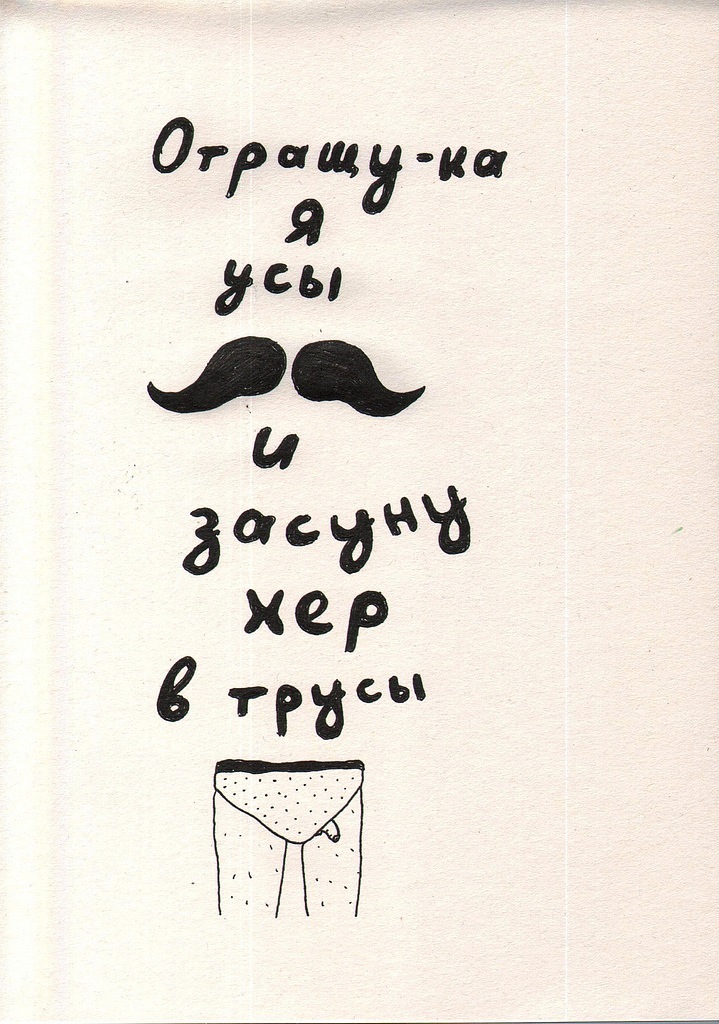 Отращу-ка
я
усы
и
засуну
хер
в трусы